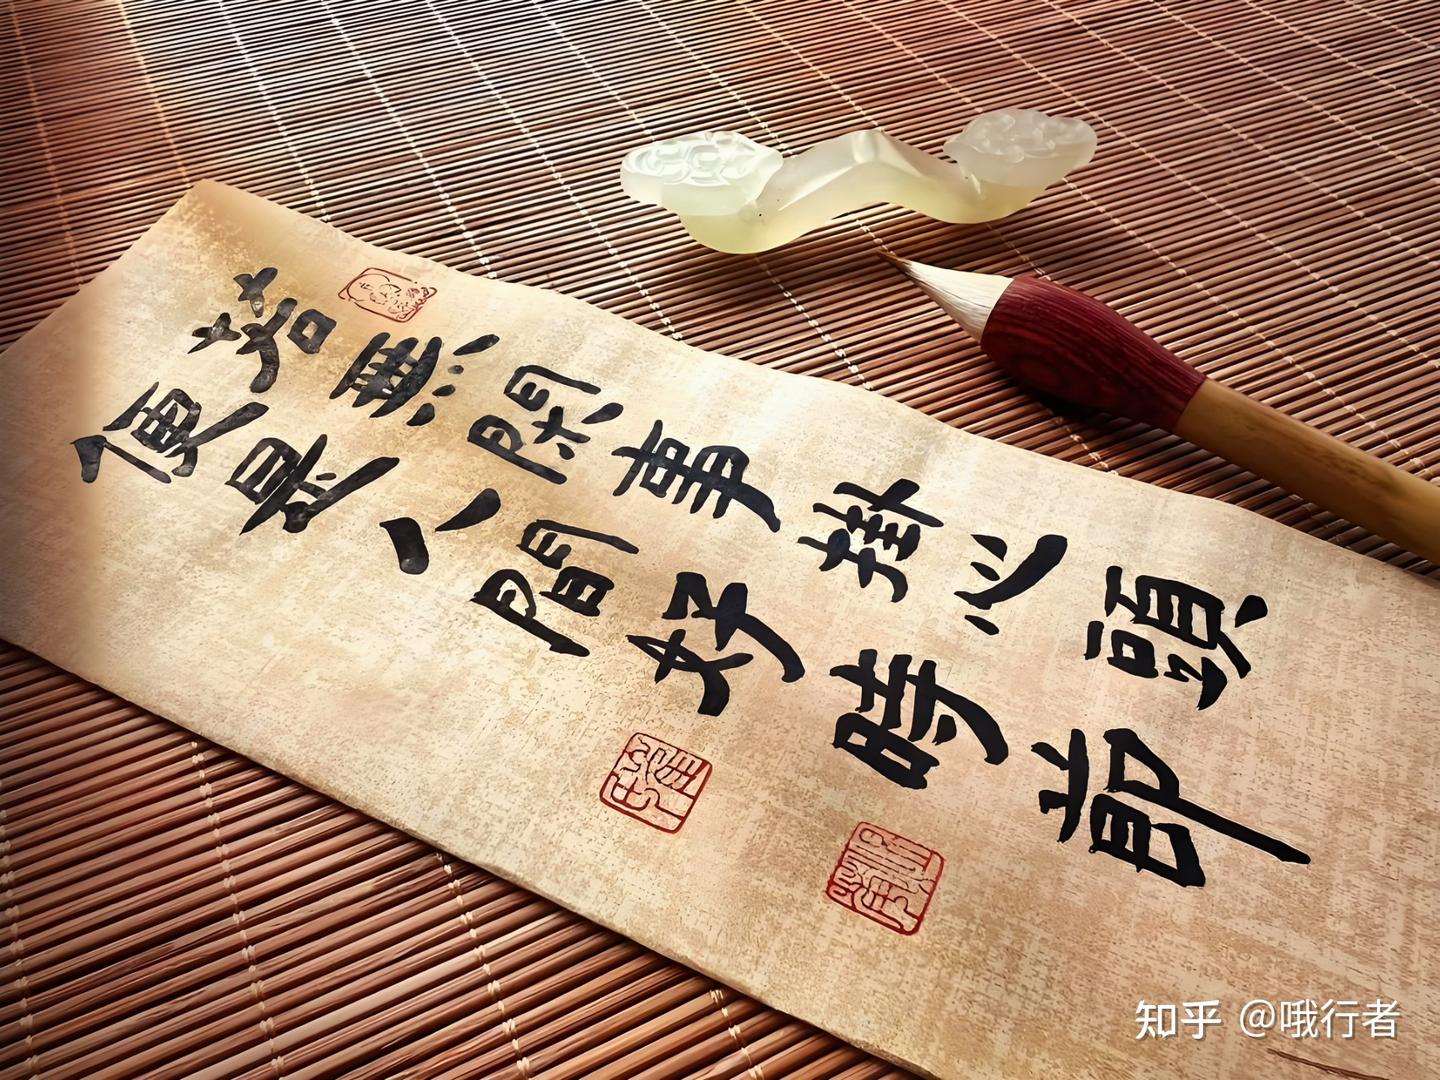 若無閑事掛心頭
便是人間好時節
知乎 @哦行者